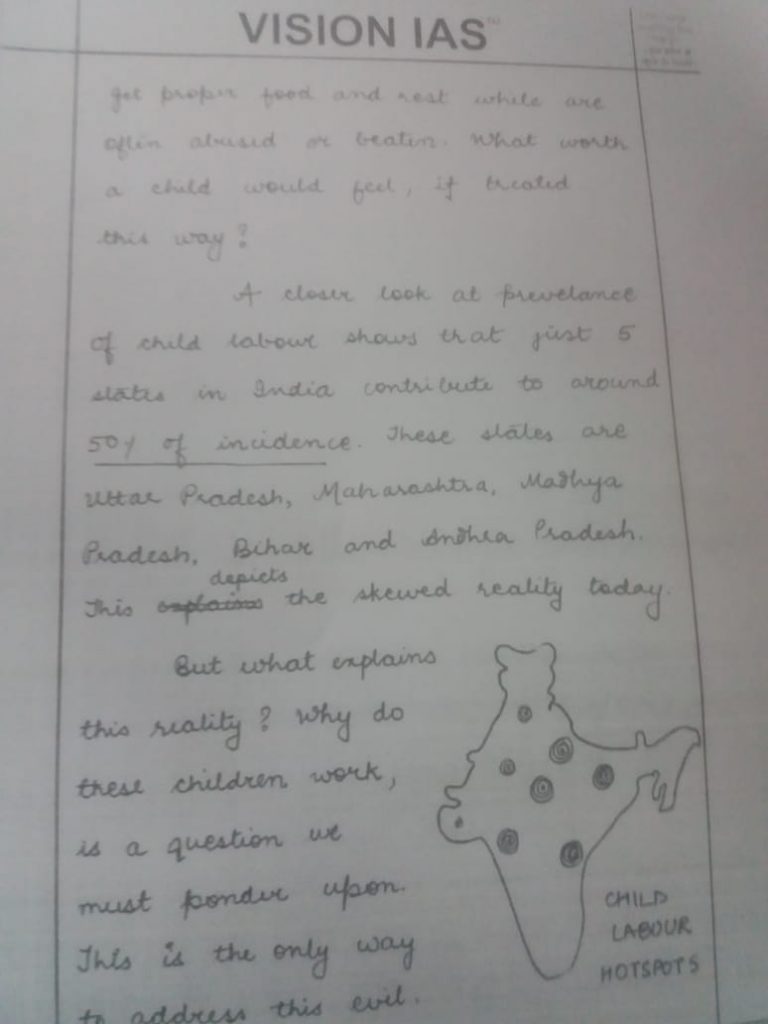 VISION IAS™
get proper food and rest while are
often abused or beaten. What worth
a child would feel, if treated
this way?
A closer look at prevelance
of child labour shows that just 5
states in India contribute to around
50% of incidence. These states are
Uttar Pradesh, Maharashtra, Madhya
Pradesh, Bihar and Andhra Pradesh.
depicts
This explains the skewed reality today.
But what explains
this reality? Why do
these children work,
is a question we
must ponder upon.
This is the only way
to address this evil.
CHILD
LABOUR
HOTSPOTS